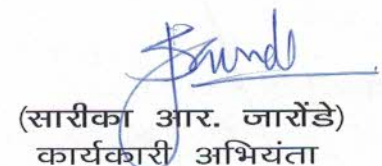 (सारीका आर. जारोंडे)
कार्यकारी अभियंता